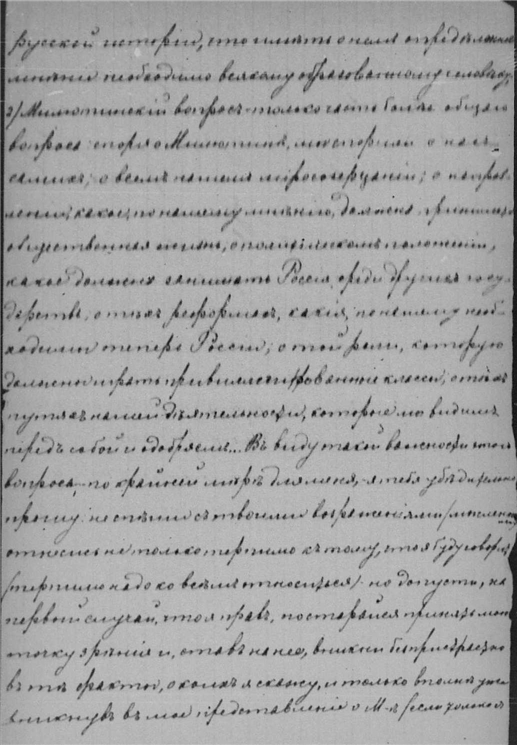 русской исторiи, что имѣть о немъ опредѣленное
мнѣнiе необходимо всякому образованному человѣку.
2) Милютинскiй вопросъ только часть болѣе общаго
вопроса: споря о Милютинѣ, мы спорили о насъ
самихъ, о всемъ нашемъ мiросозерцанiи; о направ-
ленiи, какое, по нашему мнѣнiю, должна принимать
общественная жизнь, о политическомъ положенiи,
какое должна занимать Россiя среди другихъ госу-
дарствъ, о тѣхъ реформахъ, какiя, по нашему необ-
ходимы теперь Россiи; о той роли, которую
должны играть привилегированные классы; о тѣхъ
путяхъ нашей дѣятельности, которые мы видимъ
передъ собой и одобряемъ... Въ виду такой важности этого
вопроса - по крайней мѣрѣ для меня, - я тебя убѣдительно
прошу: не спѣши съ твоими возраженiями (мысленно)
отнесись не только терпимо къ тому, что я буду говорить
(терпимо надо ко всѣмъ относиться) - но допусти, на
первый случай, что я правъ, постарайся принять мою
точку зрѣнiя и, ставъ на нее, вникни безпристрастно
въ тѣ факты, о коихъ я скажу, и только вполнѣ уже
вникнувъ въ мое представленiе о М-нѣ (если только я